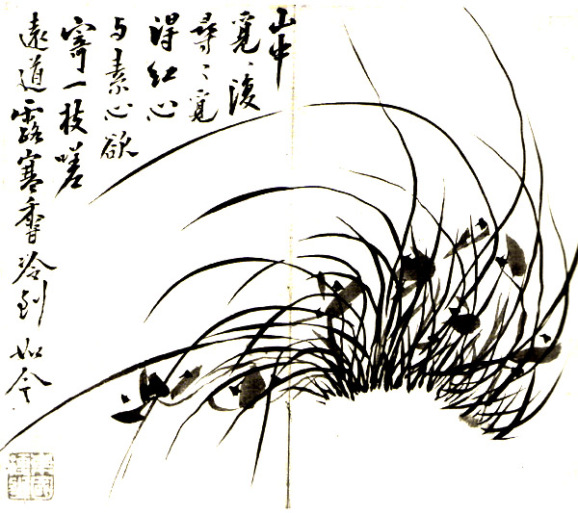 山中
覓〻復
尋〻覓
得紅心
与素心欲
寄一枝嗟
遠道露寒香冷到如今